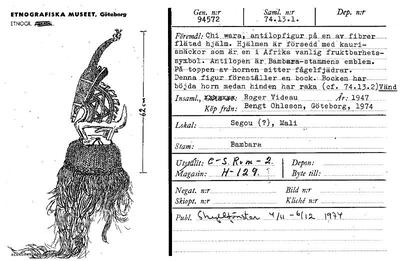 ETNOGRAFISKA MUSEET, Göteborg
ETNOGR.
62 cm
Gen. n:r
94572
Saml. n:r
74.13.1.
Dep. n:r
Föremål: Chi wara, antilopfigur på en av fibrer
flätad hjälm. Hjälmen är försedd med kauri-
snäckor som är en i Afrika vanlig fruktbarhets-
symbol. Antilopen är Bambara-stammens emblem.
På toppen av hornen sitter fågelfjädrar.
Denna figur föreställer en bock. Bocken har
böjda horn medan hinden har raka (cf. 74.13.2) Vänd
Insaml. Roger Videau År: 1947
Köp från: Bengt Ohlsson, Göteborg, 1974
Lokal: Segou (?), Mali
Stam: Bambara
Utställt: C-S. Rum-2. Depon:
Magasin: H-129. Byte till:
Negat. n:r Bild n:r
Skiopt. n:r Kliché n:r
Publ. Skyltfönster 4/11 - 6/12 1974